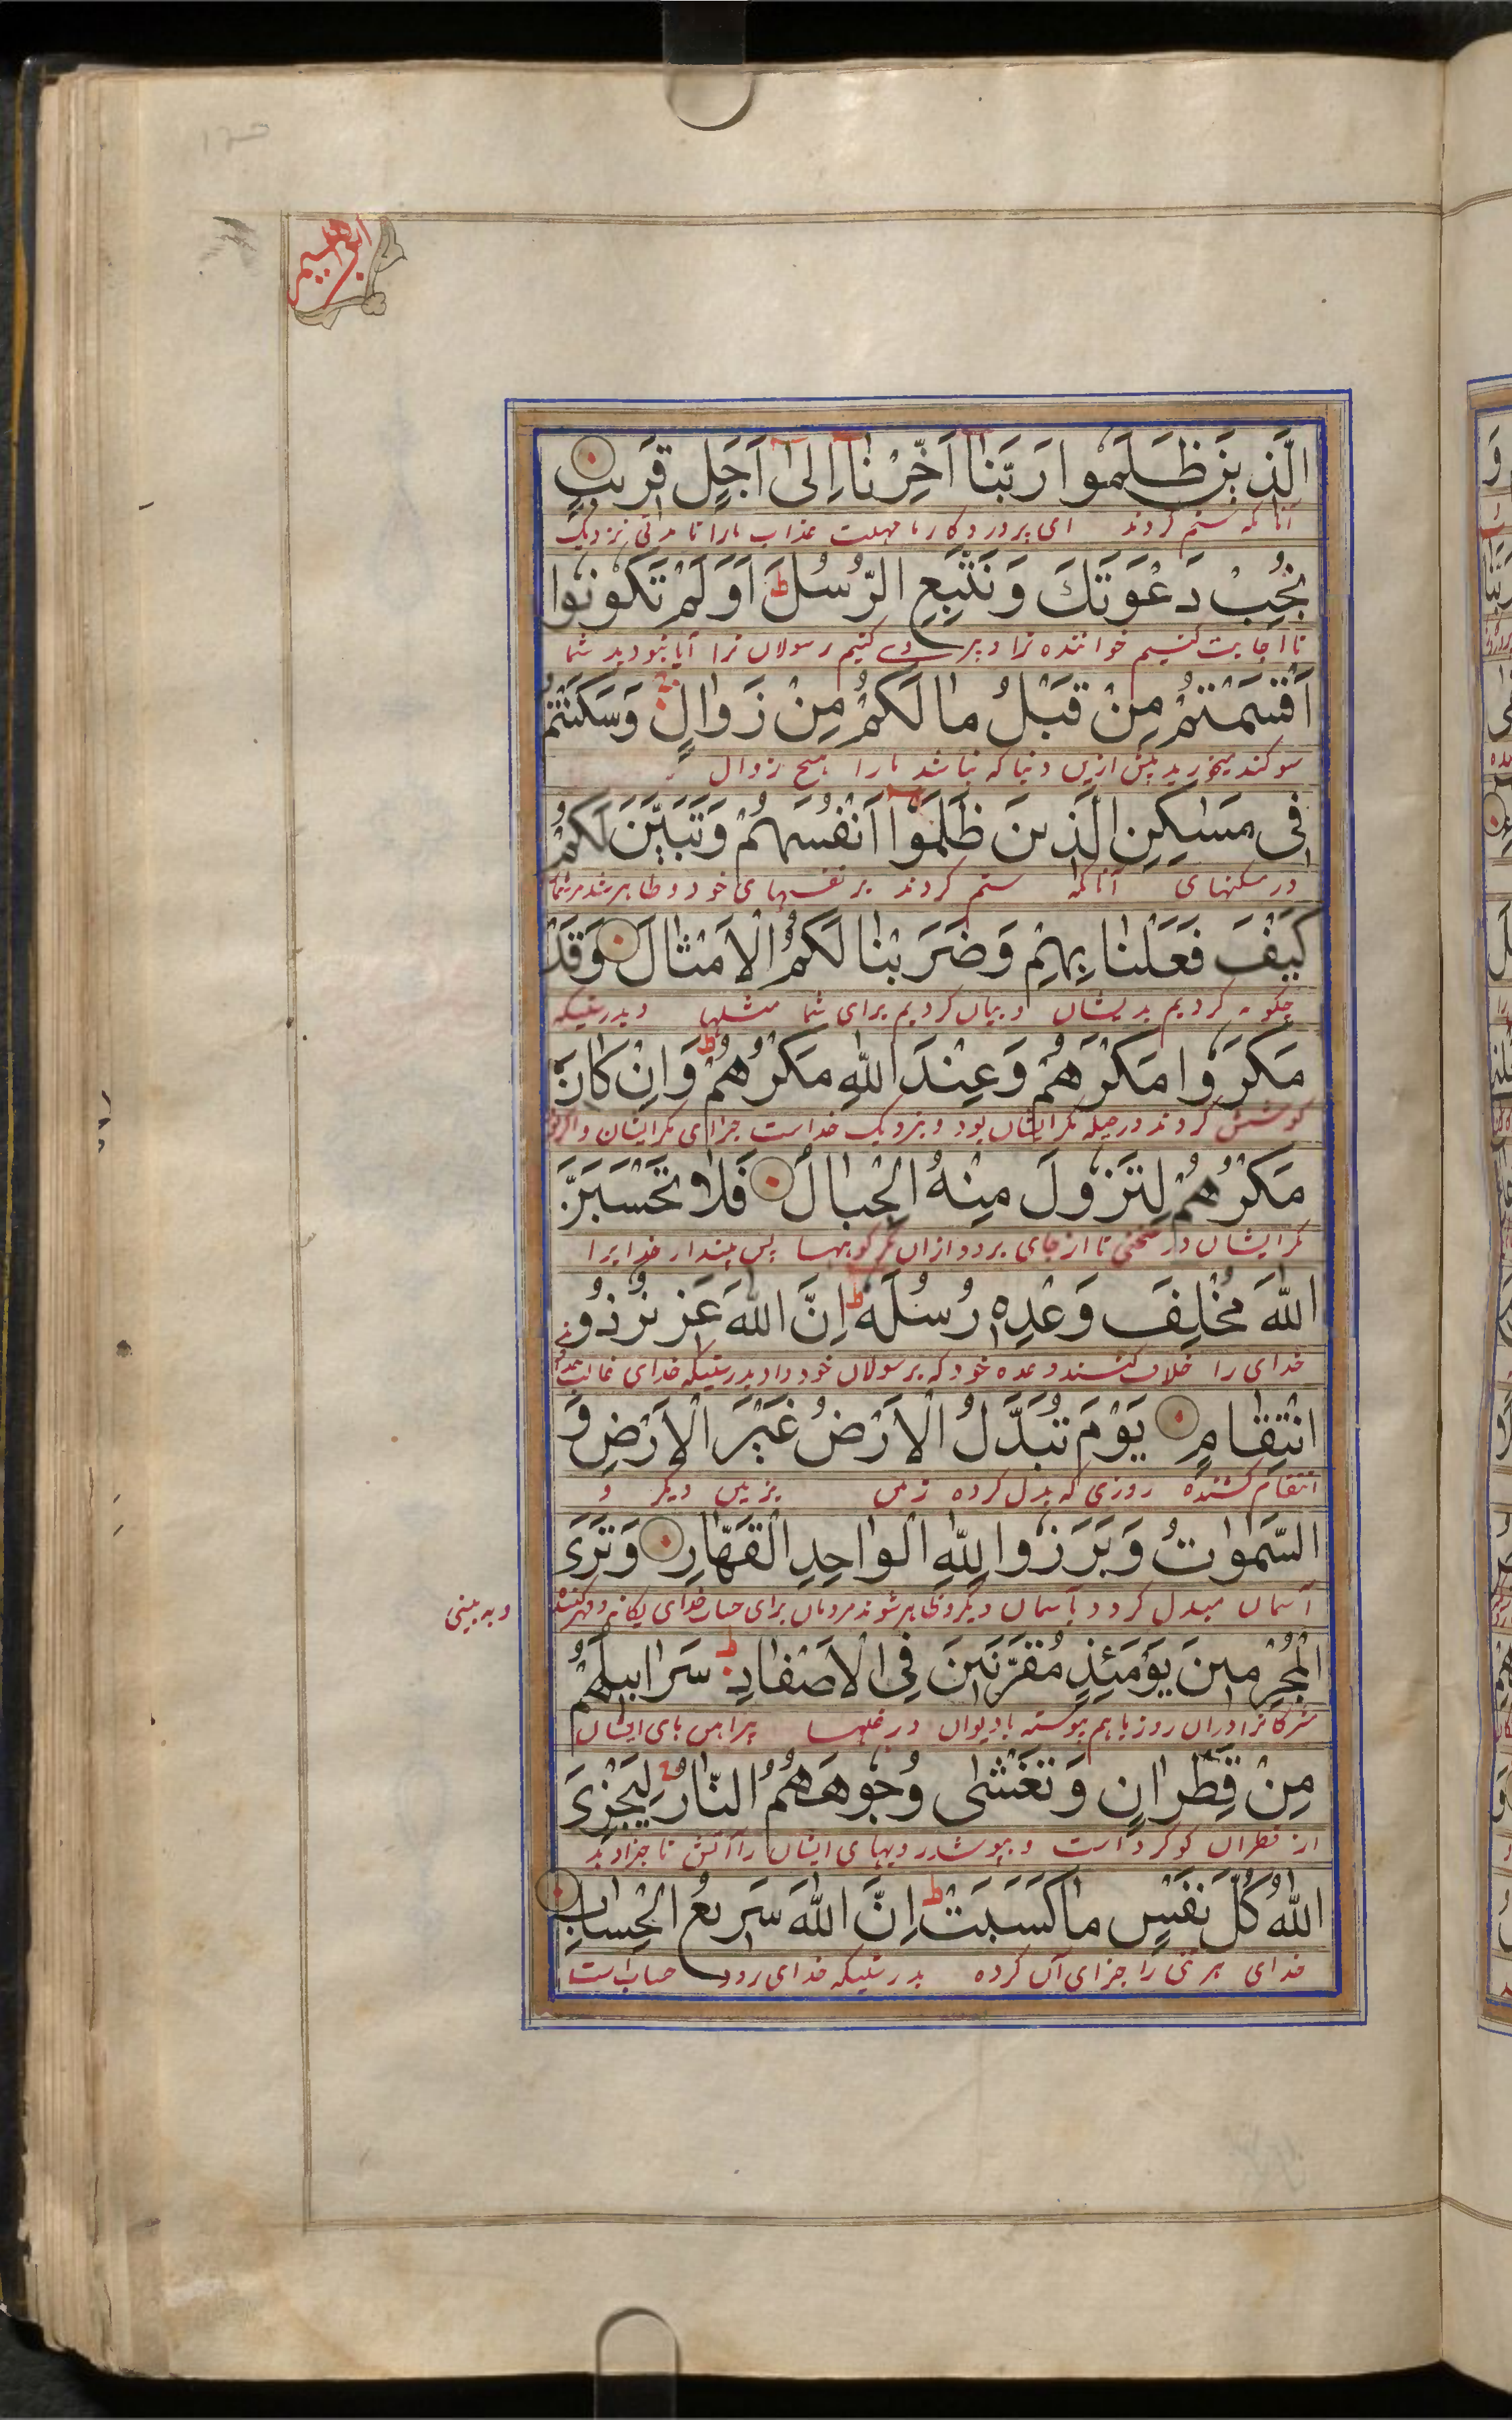 ابراهيم
الَّذينَ ظَلَمُوا رَبَّنا اَخِّرْنا اِلىٰ اَجَلٍ قَريبٍ
آنانکه ستم کردند ای پروردگار ما مهلت عذاب مارا تا مدتی نزدیک
نُجِبْ دَعْوَتَكَ وَنَتَّبِعِ الرُّسُلَ ط اَوَلَمْ تَكُونُوا
تا اجابت کنیم خواننده ترا و پیروی کنیم رسولان ترا آیا نبودید شما
اَقْسَمْتُمْ مِنْ قَبْلُ ما لَكُمْ مِنْ زَوالٍ وَسَكَنْتُمْ
سوکند میخورید پیش ازین دنیا که نباشد مارا هیچ زوال
فى مَسٰاكِنِ الَّذينَ ظَلَمُوا اَنْفُسَهُمْ وَتَبَيَّنَ لَكُمْ
در مسکنهای آنانکه ستم کردند بر نفسهای خود و ظاهر شد مر شما
كَيْفَ فَعَلْنا بِهِمْ وَضَرَبْنا لَكُمُ الْاَمْثالَ وَقَدْ
چکونه کردیم بدیشان و بیان کردیم برای شما مثلها و بدرستیکه
مَكَرُوا مَكْرَهُمْ وَعِنْدَ اللّٰهِ مَكْرُهُمْ ط وَاِنْ كانَ
کوشش کردند در حیله مکر ایشان بود و نزدیک خداست جزای مکر ایشان
مَكْرُهُمْ لِتَزُولَ مِنْهُ الْجِبالُ فَلا تَحْسَبَنَّ
مکر ایشان در سختی تا از جای برود از آن مکر کوهها پس مپندار خدایرا
اللّٰهَ مُخْلِفَ وَعْدِهٖ رُسُلَهُ ط اِنَّ اللّٰهَ عَزيزٌ ذُو
خدای را خلاف کننده وعده خود که برسولان خود داد بدرستیکه خدای غالب
انْتِقامٍ يَوْمَ تُبَدَّلُ الْاَرْضُ غَيْرَ الْاَرْضِ وَ
انتقام کشنده روزی که بدل کرده زمین بزمین دیکر و
السَّمٰواتُ وَبَرَزُوا لِلّٰهِ الْواحِدِ الْقَهّارِ وَتَرَى
آسمان مبدل کردد بآسمان دیکر و ظاهر شوند مردمان برای حساب خدای یکانه و قهر کننده
و به بینی
الْمُجْرِمينَ يَوْمَئِذٍ مُقَرَّنينَ فِى الْاَصْفادِ ط سَرابيلُهُمْ
مشرکانرا در آن روز باهم پیوسته با دیوان در غلها پیراهن های ایشان
مِنْ قَطِرانٍ وَتَغْشىٰ وُجُوهَهُمُ النّارُ لِيَجْزِىَ
از قطران کوکرد است و بپوشد رویهای ایشان را آتش تا جزا دهد
اللّٰهُ كُلَّ نَفْسٍ ما كَسَبَتْ ط اِنَّ اللّٰهَ سَريعُ الْحِسابِ
خدای هر تنی را جزای آن کرده بدرستیکه خدای زود حساب است